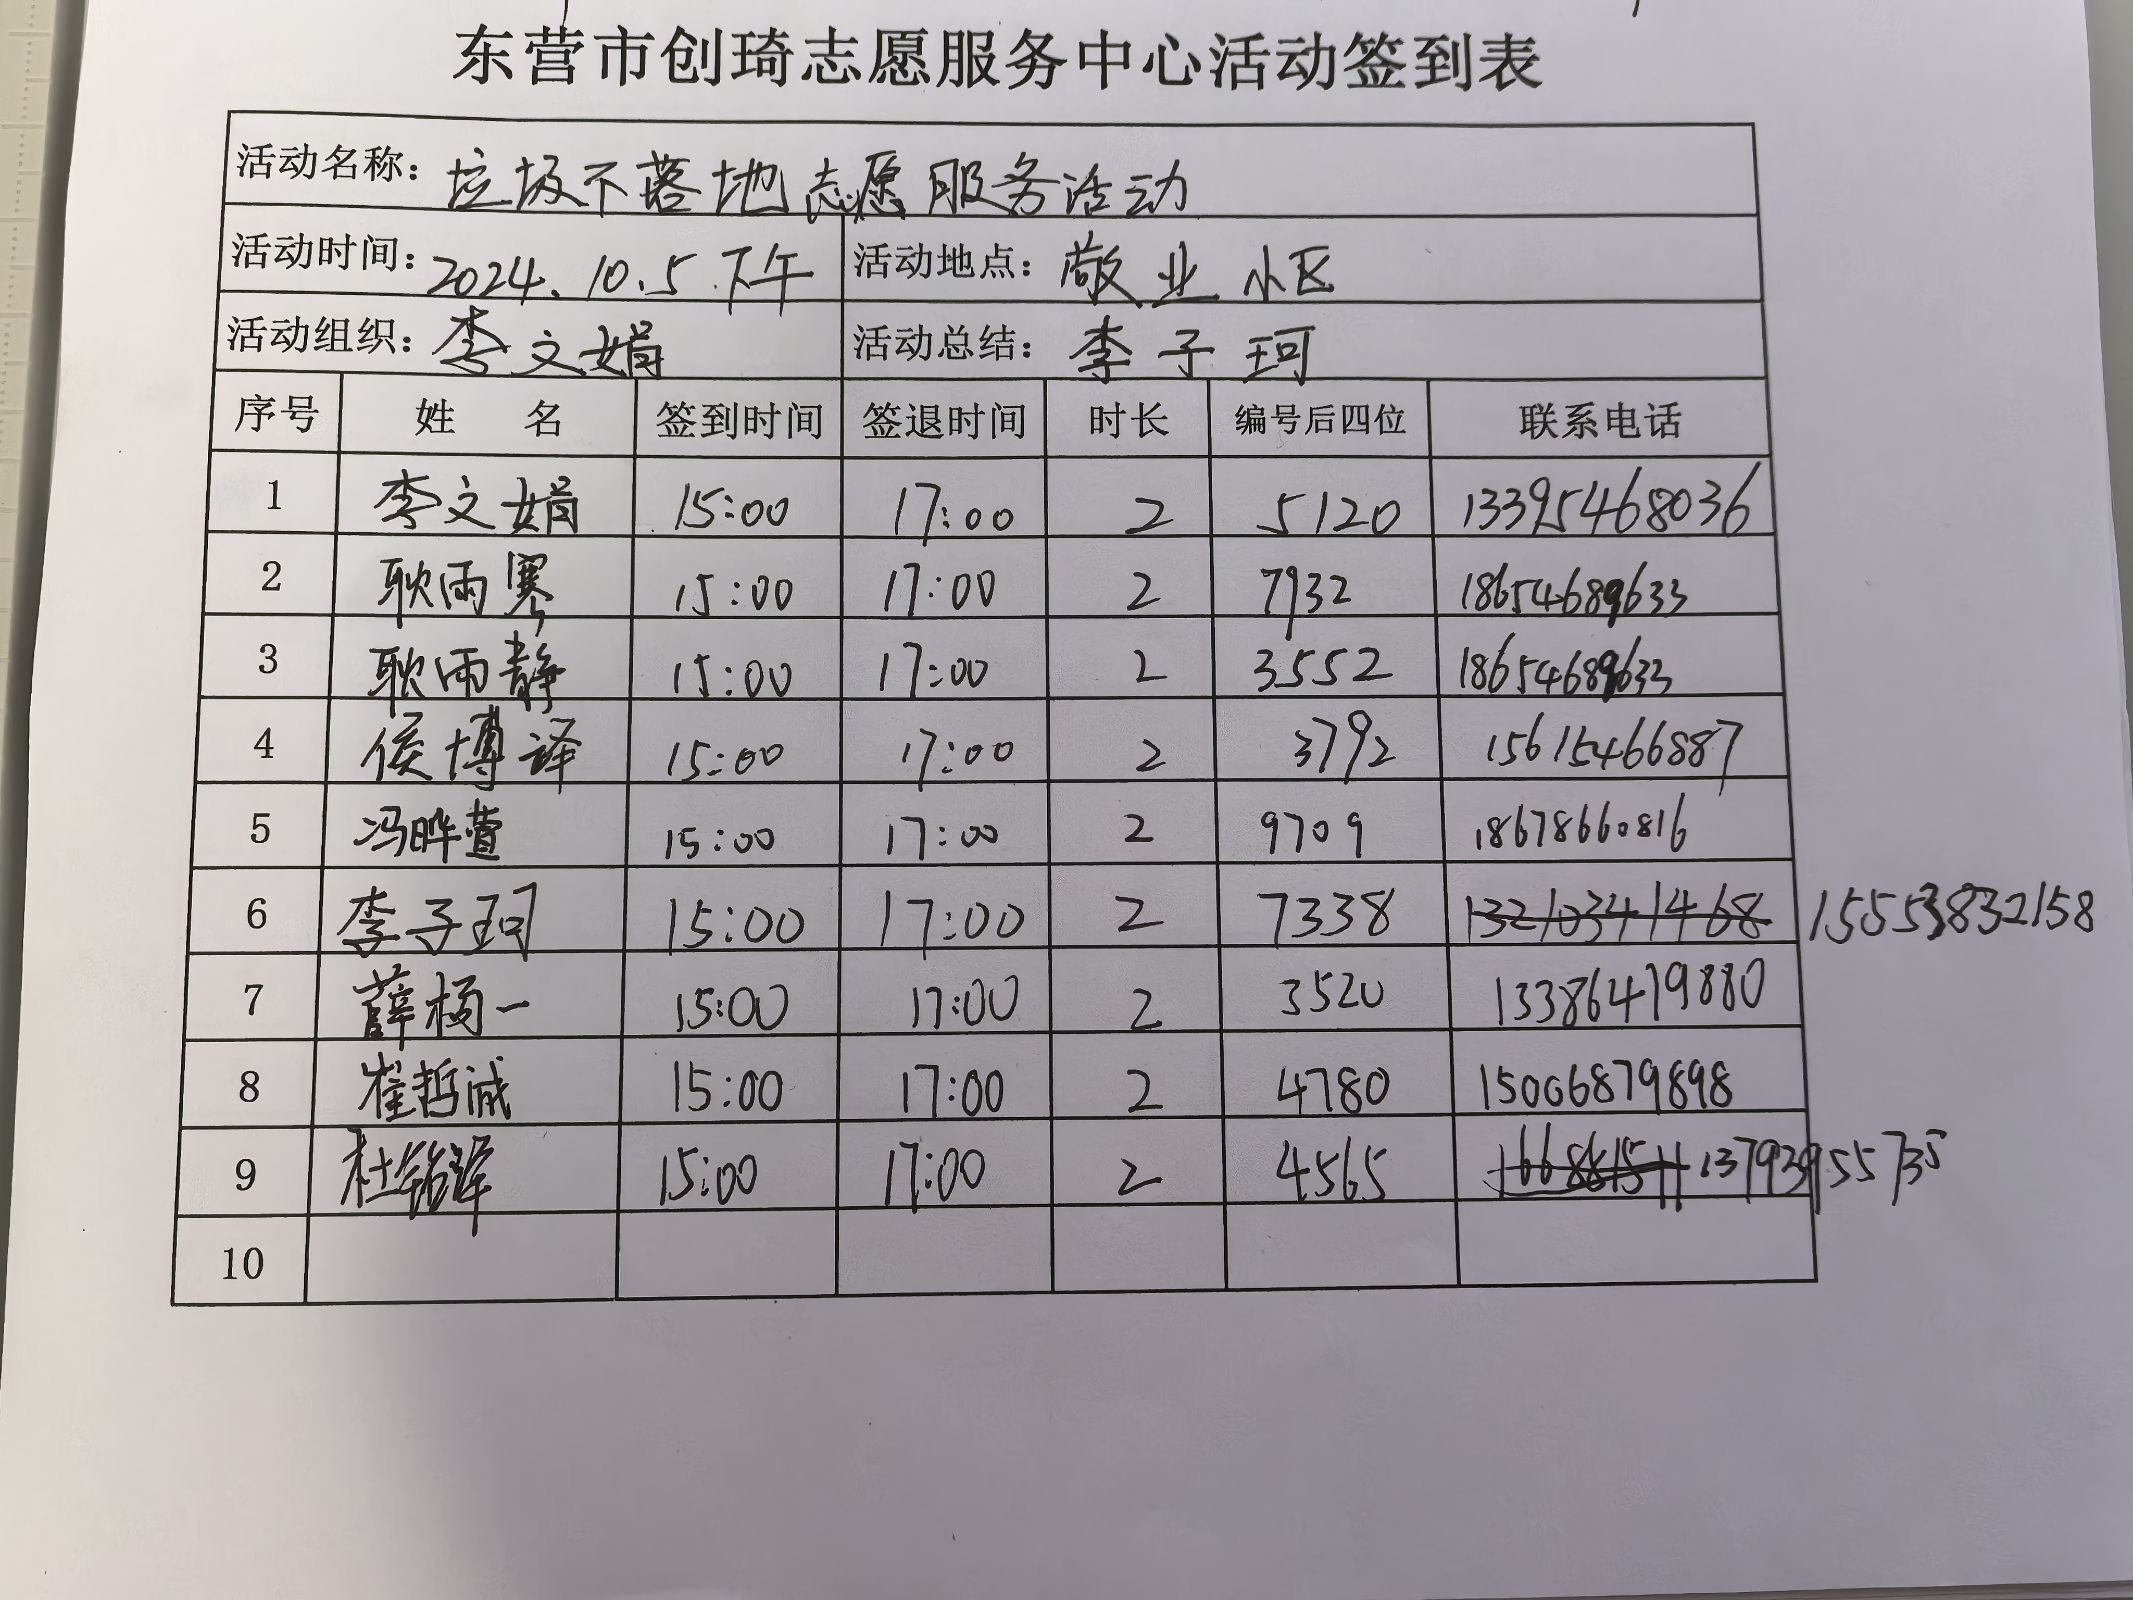 东营市创琦志愿服务中心活动签到表
活动名称：垃圾不落地志愿服务活动
活动时间：2024.10.5.下午 活动地点：敬业小区
活动组织：李文娟 活动总结：李子珂
序号 姓名 签到时间 签退时间 时长 编号后四位 联系电话
1 李文娟 15:00 17:00 2 5120 13395468036
2 耿雨骞 15:00 17:00 2 7932 18654689633
3 耿雨静 15:00 17:00 2 3552 18654689633
4 侯博译 15:00 17:00 2 3792 15615466887
5 冯晔萱 15:00 17:00 2 9709 18678660816
6 李子珂 15:00 17:00 2 7338 13210341468 15553832158
7 薛杨一 15:00 17:00 2 3520 13386419880
8 崔哲诚 15:00 17:00 2 4780 15006879898
9 杜铭泽 15:00 17:00 2 4565 13793955735
10